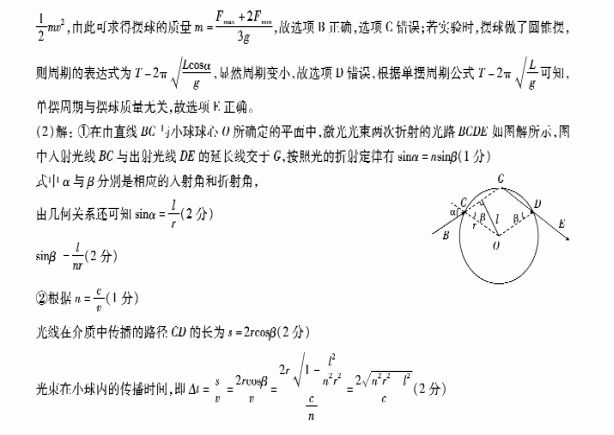 1/2 mv²,由此可求得摆球的质量 m = (Fmax + 2Fmin)/3g,故选项 B 正确,选项 C 错误;若实验时,摆球做了圆锥摆,
则周期的表达式为 T = 2π√(Lcosα/g),显然周期变小,故选项 D 错误,根据单摆周期公式 T = 2π√(L/g) 可知,
单摆周期与摆球质量无关,故选项 E 正确。
(2)解:①在由直线 BC 与小球球心 O 所确定的平面中,激光光束两次折射的光路 BCDE 如图解所示,图
中入射光线 BC 与出射光线 DE 的延长线交于 G,按照光的折射定律有 sinα = nsinβ(1 分)
式中 α 与 β 分别是相应的入射角和折射角,
由几何关系还可知 sinα = l/r(2 分)
sinβ = l/nr(2 分)
②根据 n = c/v(1 分)
光线在介质中传播的路径 CD 的长为 s = 2rcosβ(2 分)
光束在小球内的传播时间,即 Δt = s/v = 2rcosβ/v = 2r√(1 - l²/n²r²)/(c/n) = 2√(n²r² - l²)/c(2 分)
G
C
D
α
B
r
β
l
β
E
O